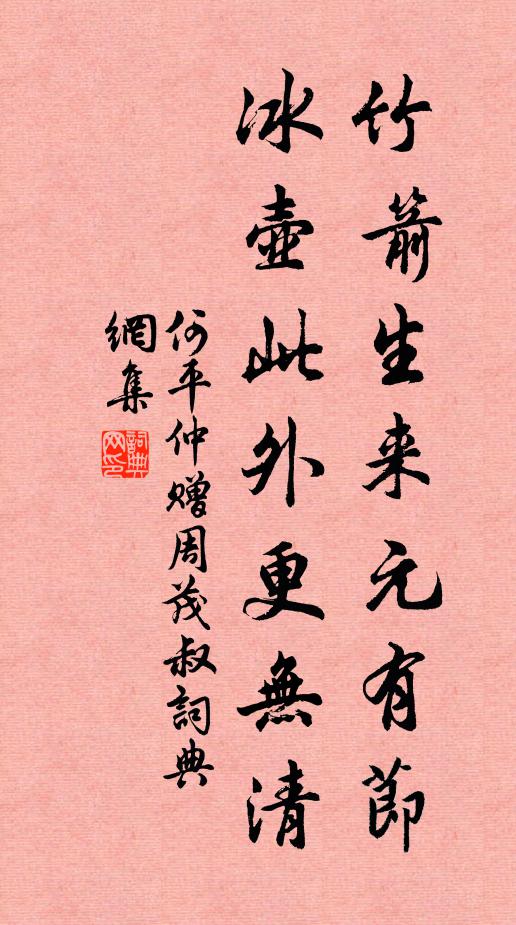 竹箭生来元有節
冰壺此外更無清
何平仲赠周茂叔詞典
網集
詞典網印